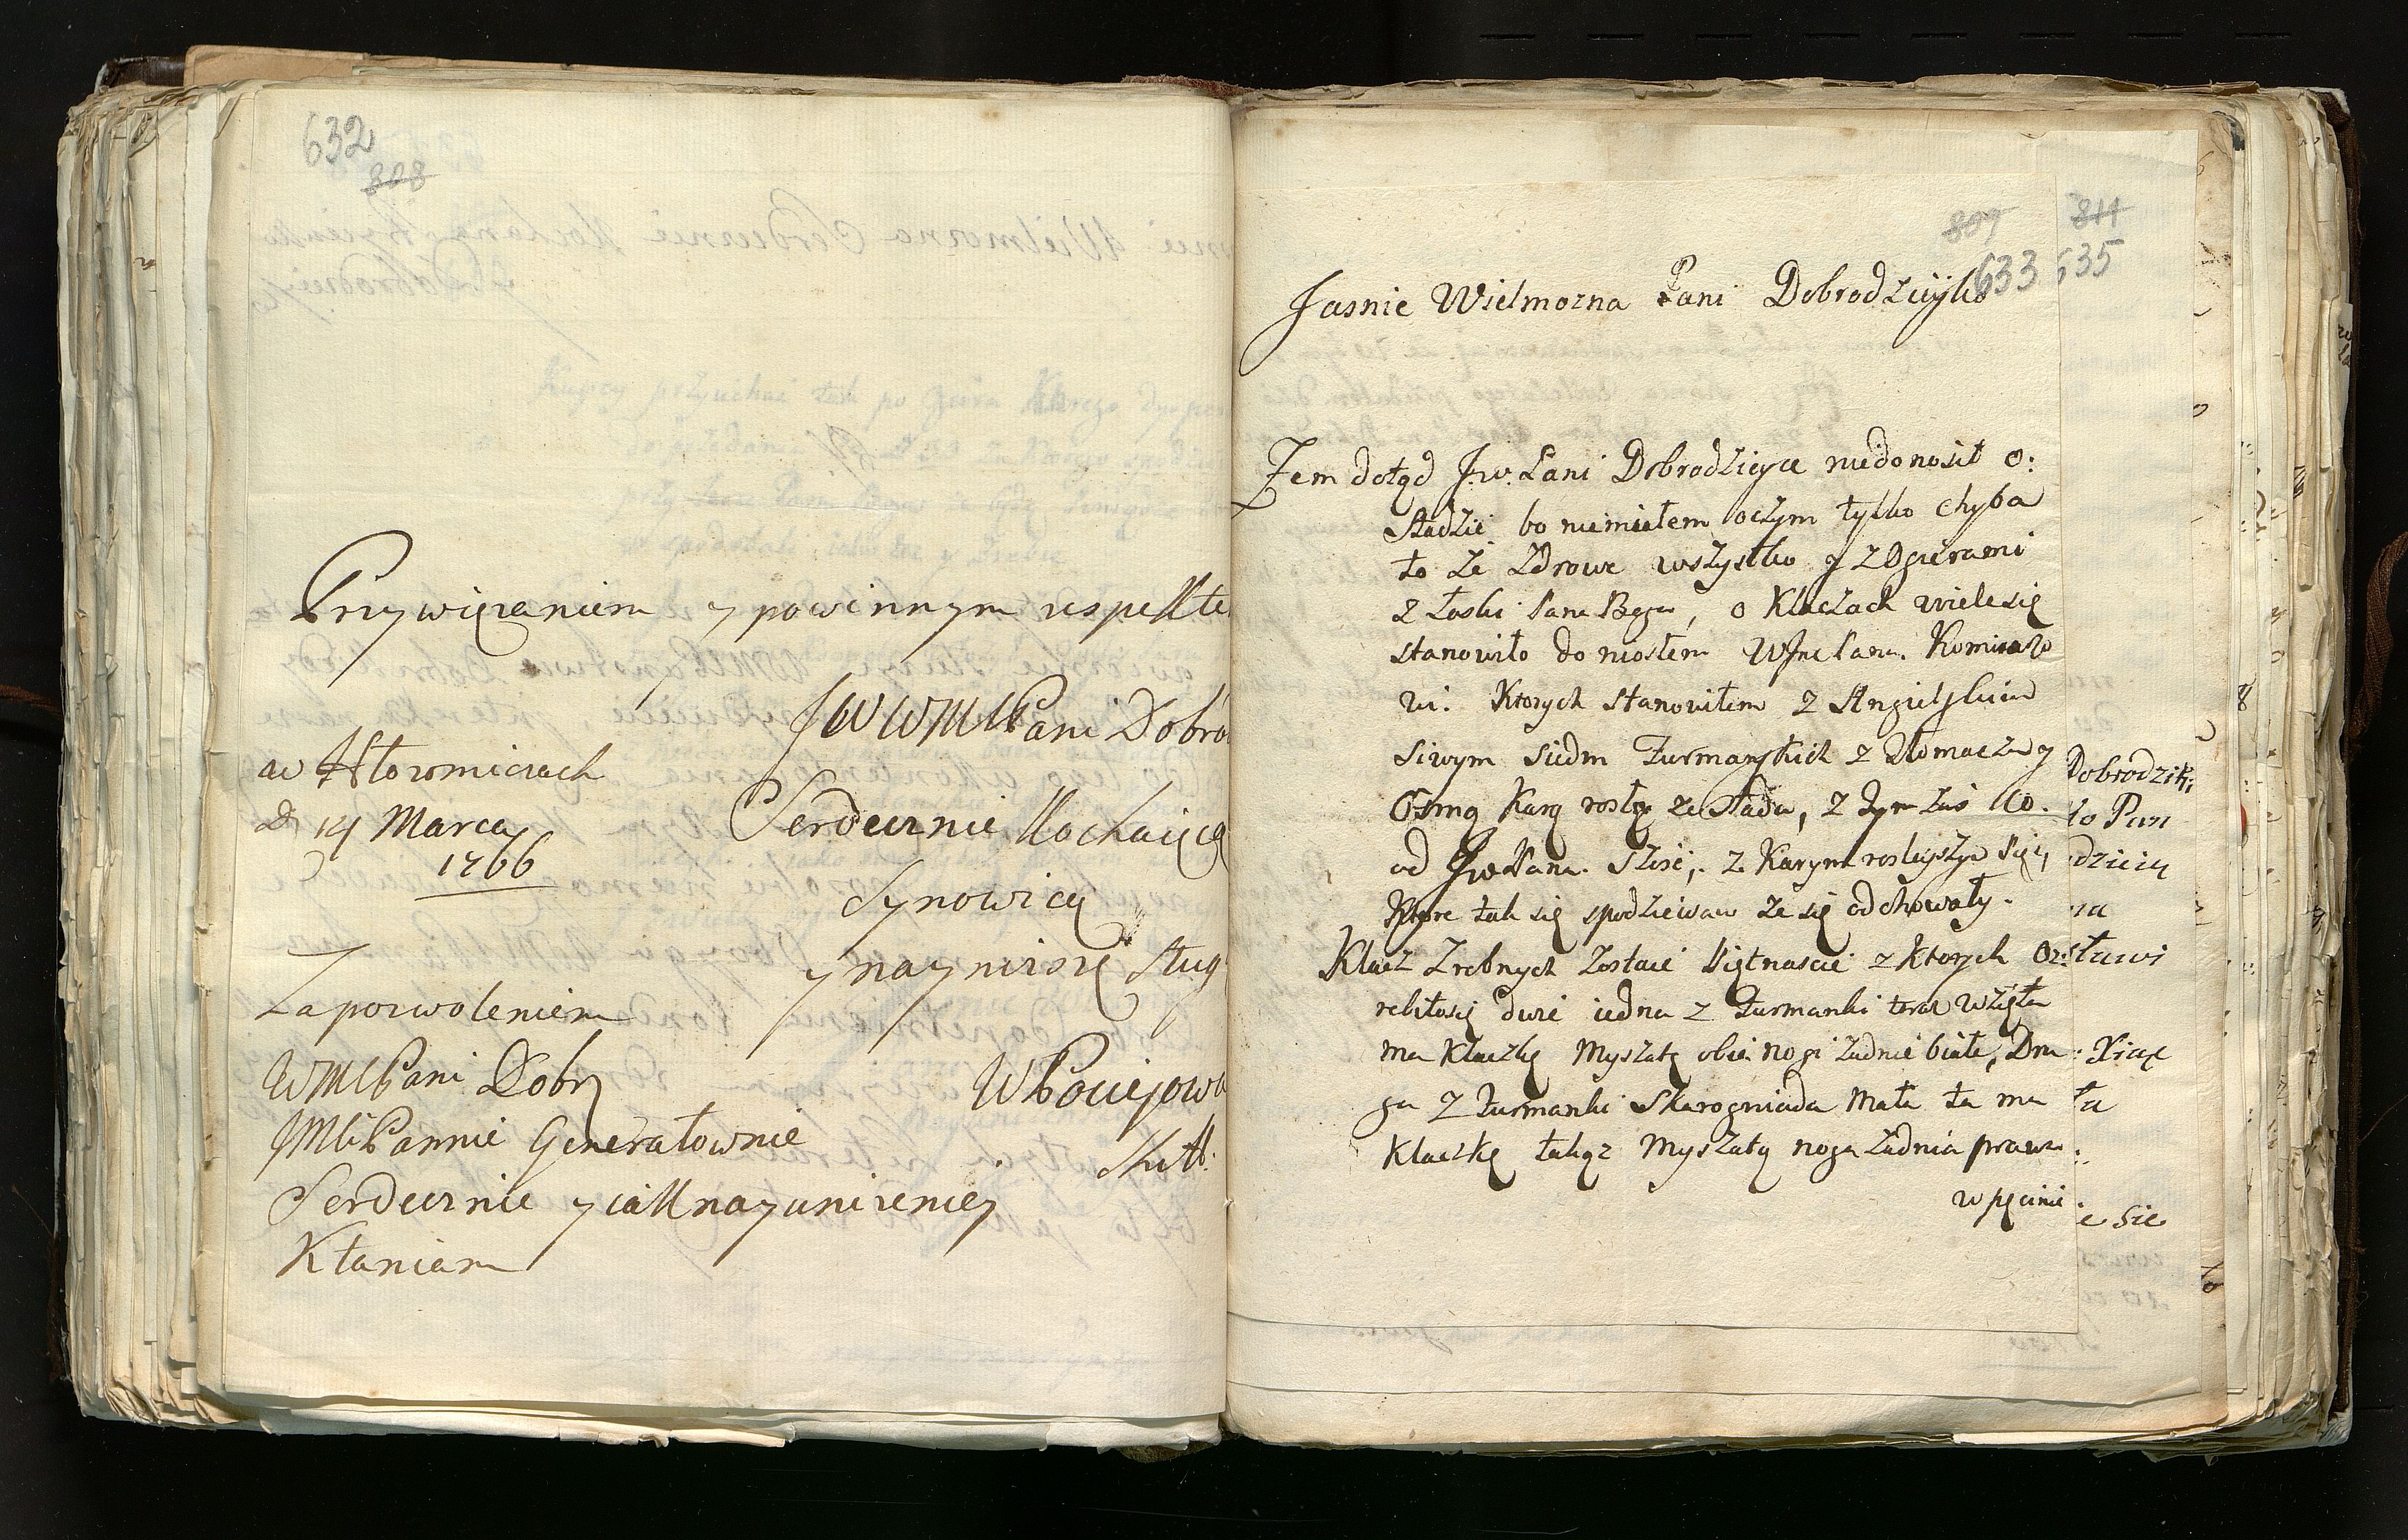 632
808
Przywiązaniem y powinnym respekte
JWWMMPani Dobro
Serdecznie Kochaiącą
Synowicą
y naynizszą Sług
WPociejowa
w Horomierach
D 14 Marca
1766
Za pozwoleniem
WMMPani Dobr
JMCPannie Generałownie
Serdecznie y iak nayunizeniey
Kłaniam
809
633
811
635
Jasnie Wielmozna Pani Dobrodziyko
Zem dotąd J.w. Pani Dobrodzieyce niedonosił o:
Stadzie bo niemiałem oczym tylko chyba
to że zdrowe wszystko y z Ogierami
z łaski Pana Boga, o Klaczach wiele się
stanowiło doniosłem WJne Panu Komisarzo
wi. Ktorych stanowiłem z Angielskim
siwym siedm Furmanskich z
Osmą Karą rosłą ze stada, z tym zaś co
od Jwo Pana. szesc, z Karym roslejszym
Ktore tak się spodziewam że się odchowały.
Klacz Zrebnych zostaie Piętnascie z ktorych Oz:
rebiłosię dwie iedna z Furmanki teraz wzięta
ma Klaczkę Myszatą obie nogi zadnie białe, Dru:
ga z Furmanki Skarogniada Mała ta ma
Klaczkę takąz Myszatą noga zadnia prawa
w pęcinie
Dobrodzik:
to Pan
dzieiy
na
stawi
ta
e sie